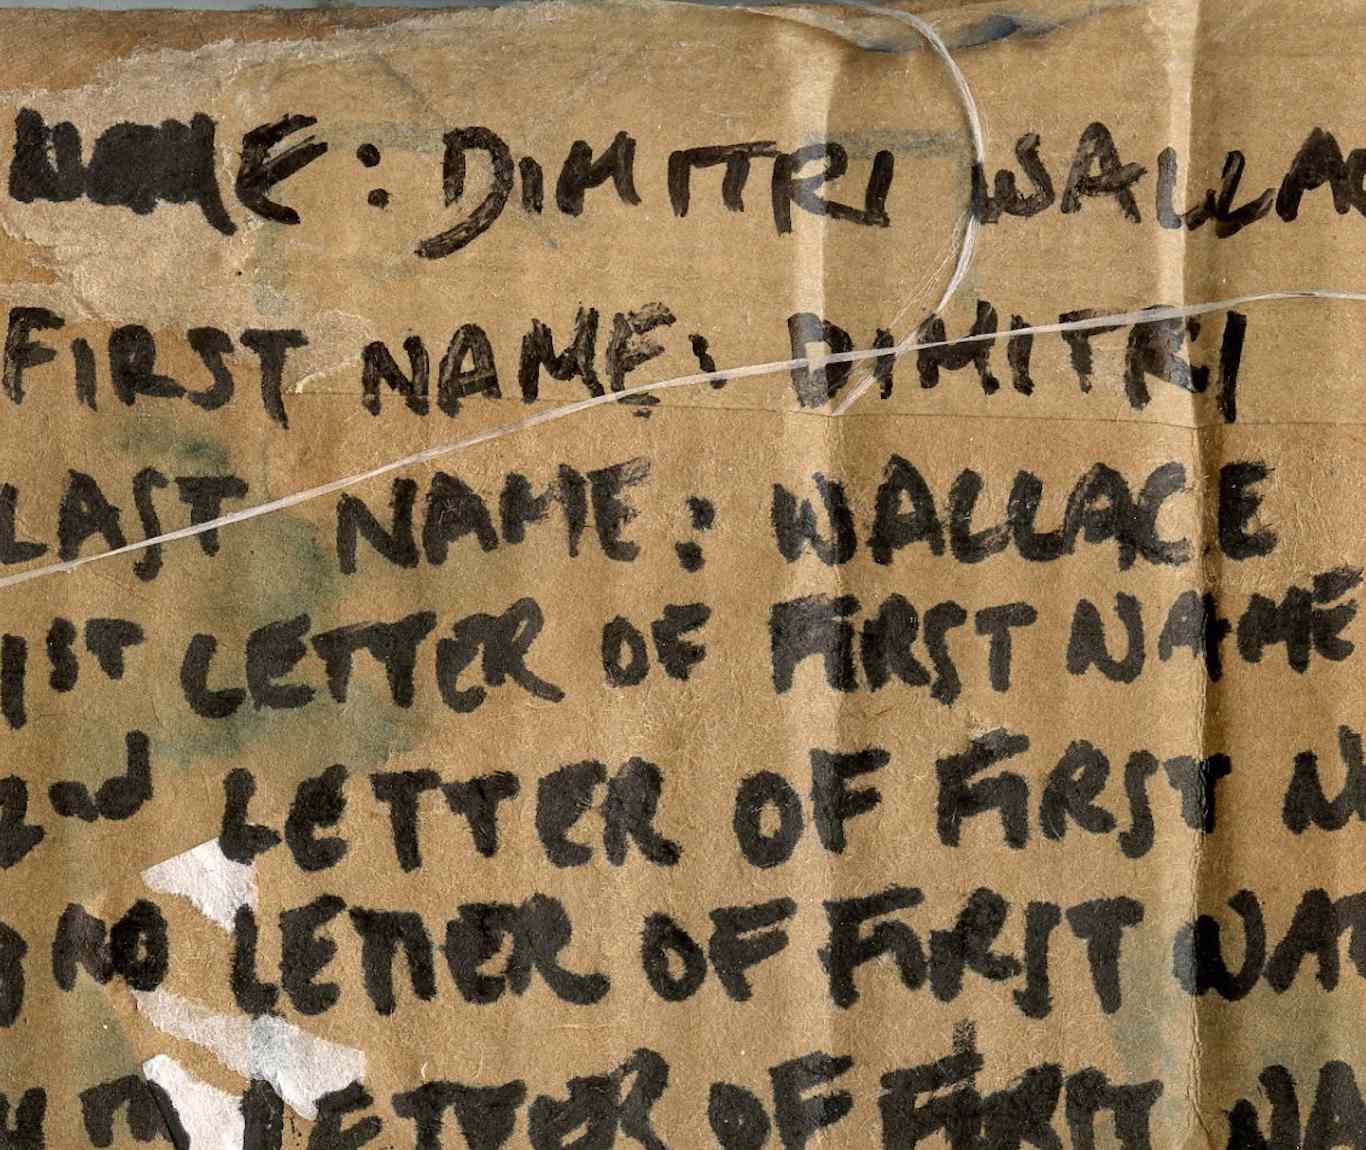 NAME: DIMITRI WALLAC
FIRST NAME: DIMITRI
LAST NAME: WALLACE
1ST LETTER OF FIRST NAME
2nd LETTER OF FIRST N
LETTER OF FIRST NA
LETTER OF FIRST NA